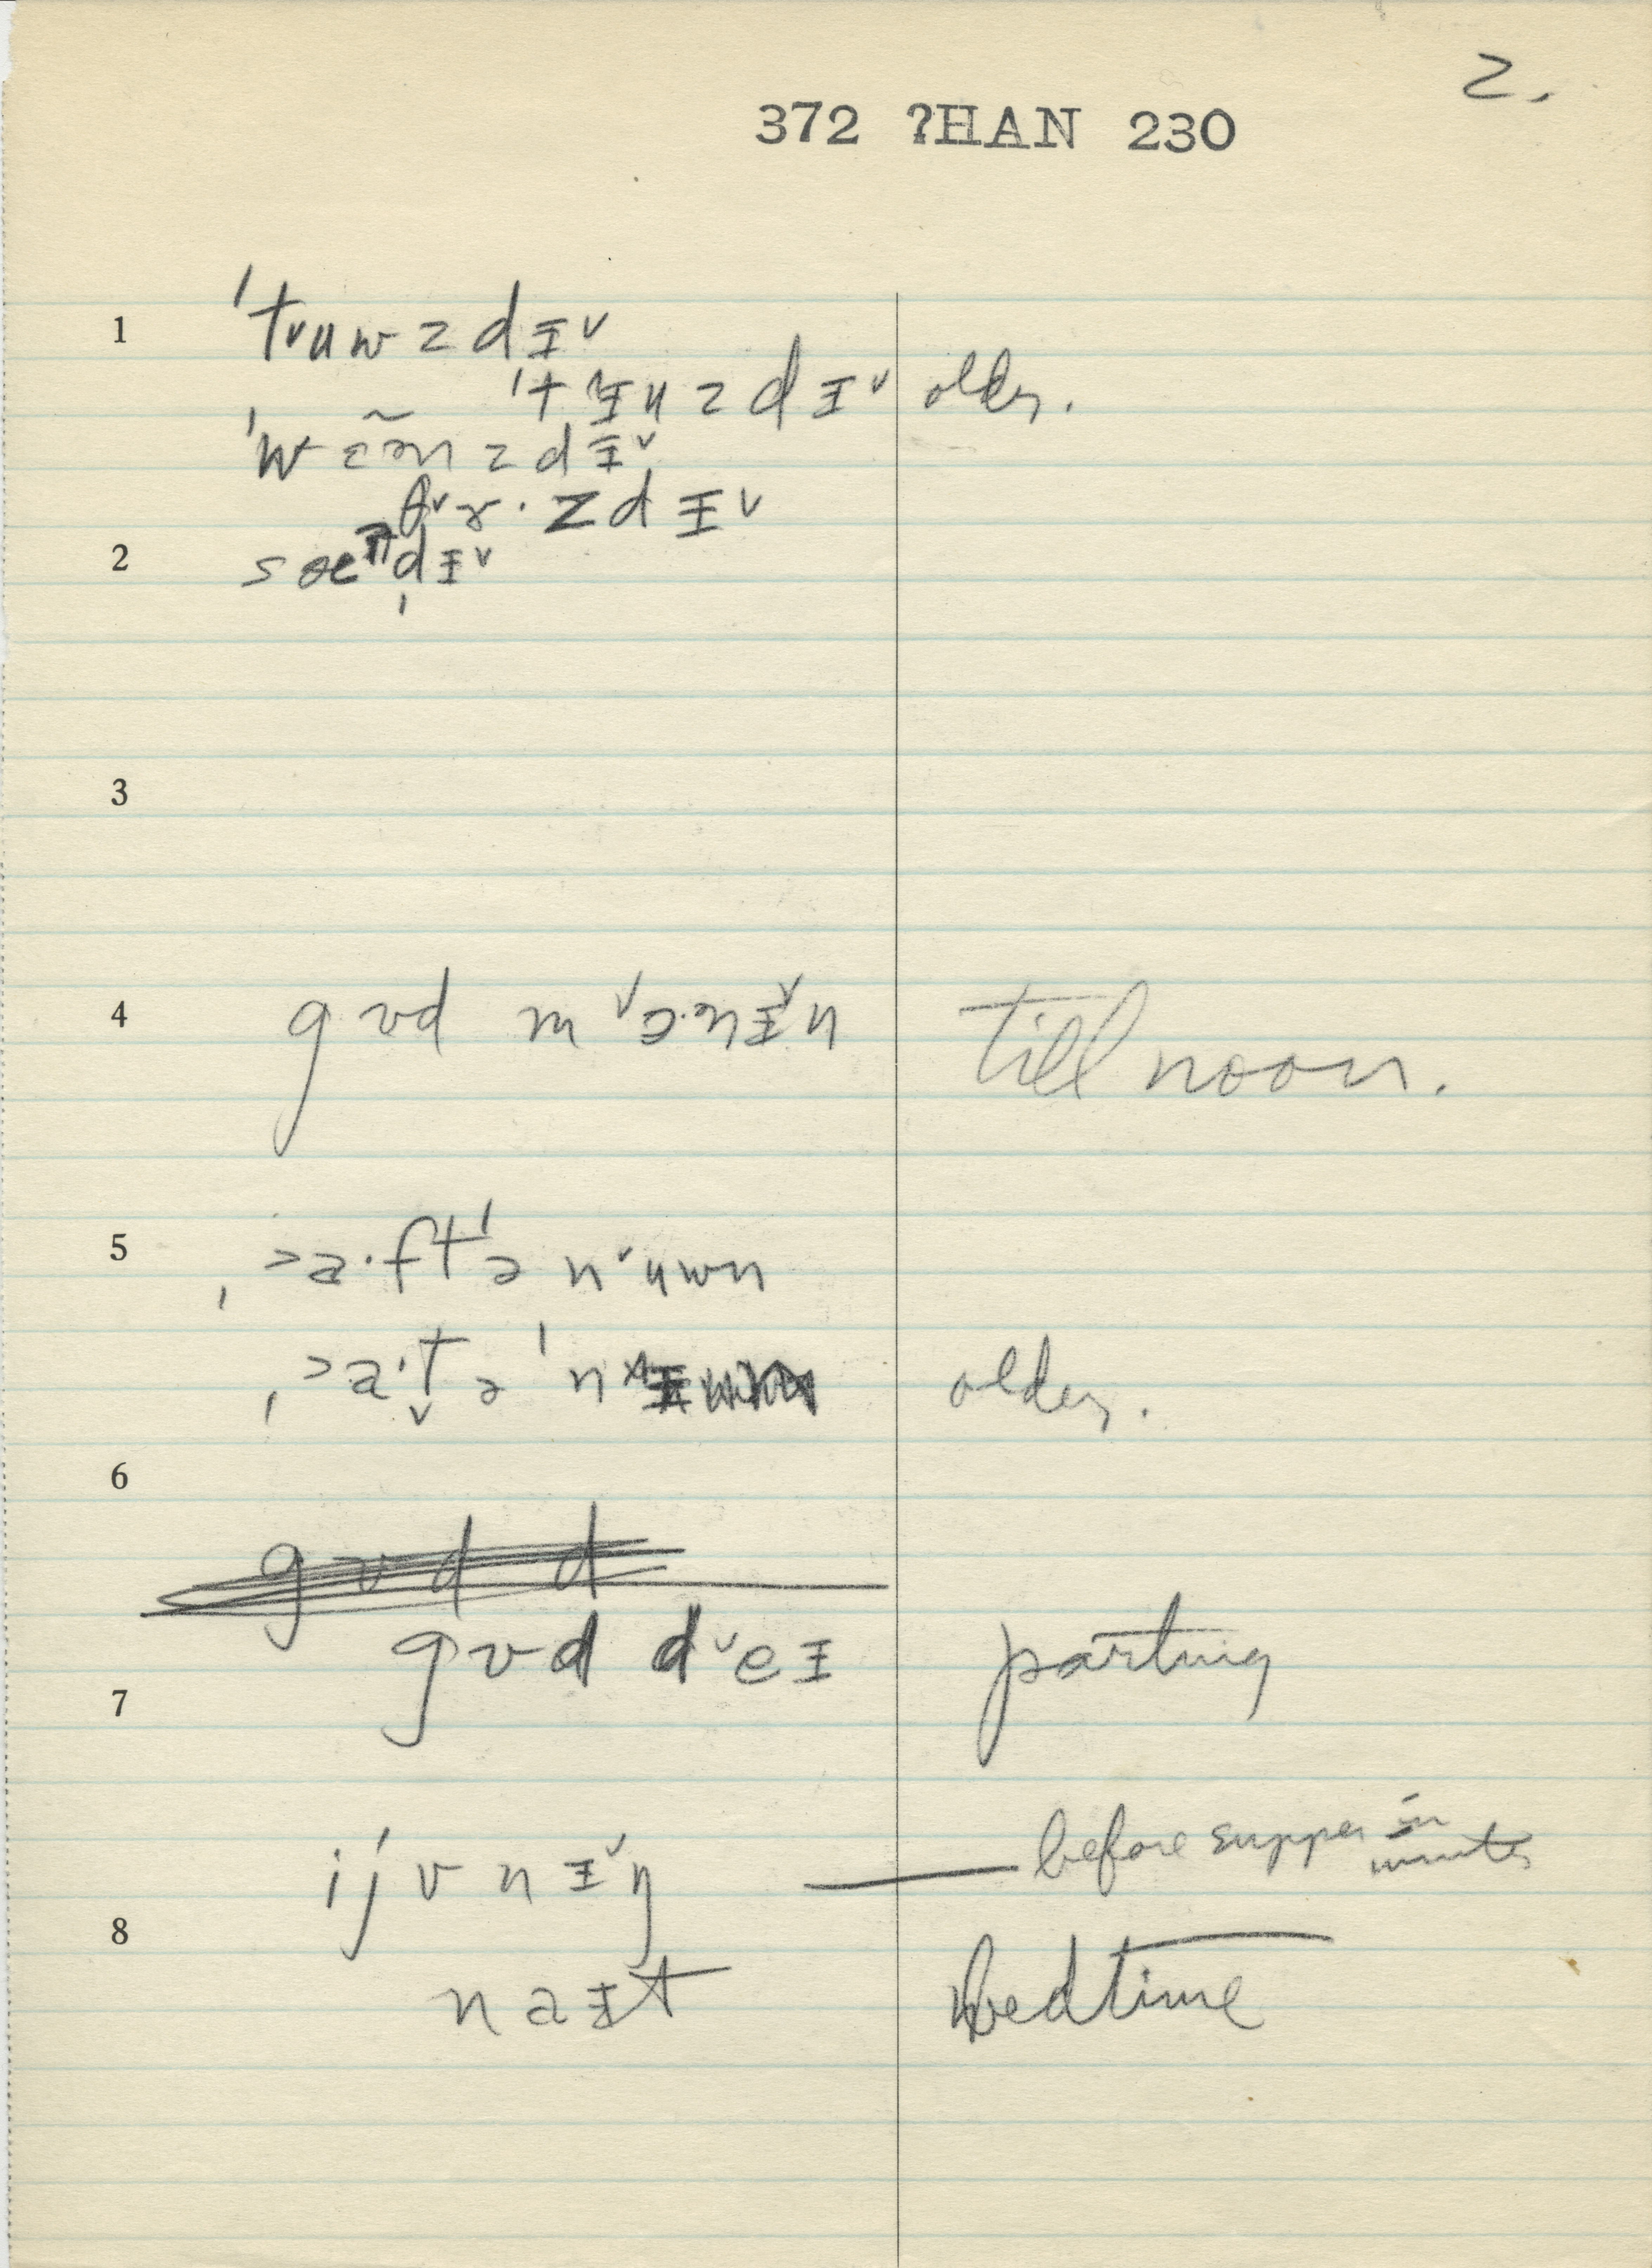 2.
372 ?HAN 230
1 ˈtᵛuwzdɪᵛ
ˈtᵛɪuzdɪᵛ older.
ˈwɛ̃ənzdɪᵛ
θᵛɤ·zdɪᵛ
2 sæⁿdɪᵛ
3
4 gʊd mᵛɔ·ənɪᵛn till noon.
5 ˌ>a·ftˈə nᵛuwn
ˌ>a·tə ˈn older.
6
gʊd d
gʊd dᵛeɪ parting
7
ijvnɪᵛŋ — before supper in winter
8
naɪt bedtime